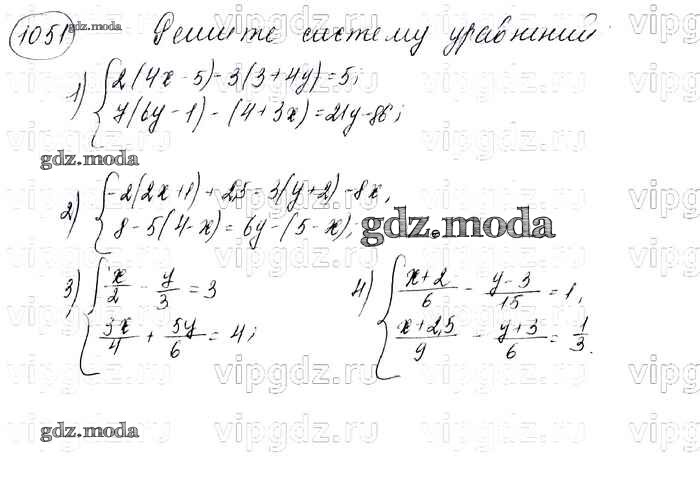 1051 Решите систему уравнений
1) { 2(4x-5)-3(3+4y)=5;
7(6y-1)-(4+3x)=21y-86;
2) { -2(2x+1)+2,5=3(y+2)-8x,
8-5(4-x)=6y-(5-x);
3) { x/2 - y/3 = 3
3x/4 + 5y/6 = 4;
4) { x+2/6 - y-3/15 = 1,
x+2,5/9 - y+3/6 = 1/3.
gdz.moda
gdz.moda
gdz.moda
gdz.moda
vipgdz.ru vipgdz.ru vipgdz.ru vipgdz.ru
vipgdz.ru vipgdz.ru vipgdz.ru vipgdz.ru